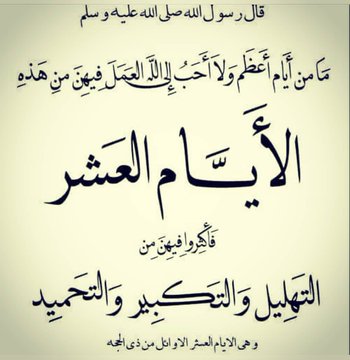 قال رسول الله صلى الله عليه وسلم
مَا من أَيَّام أَعْظَم وَلاَ أَحَبُ إِلى اللَّهِ العَمَلَ فيهنَ مِن هَذِهِ
الأَيَّام العَشر
فَأكثِروا فيهِنَ مِن
التَهِليل وَالتَكبِير وَالتَحمِيد
و هى الايام العشر الاوائل من ذى الحجه